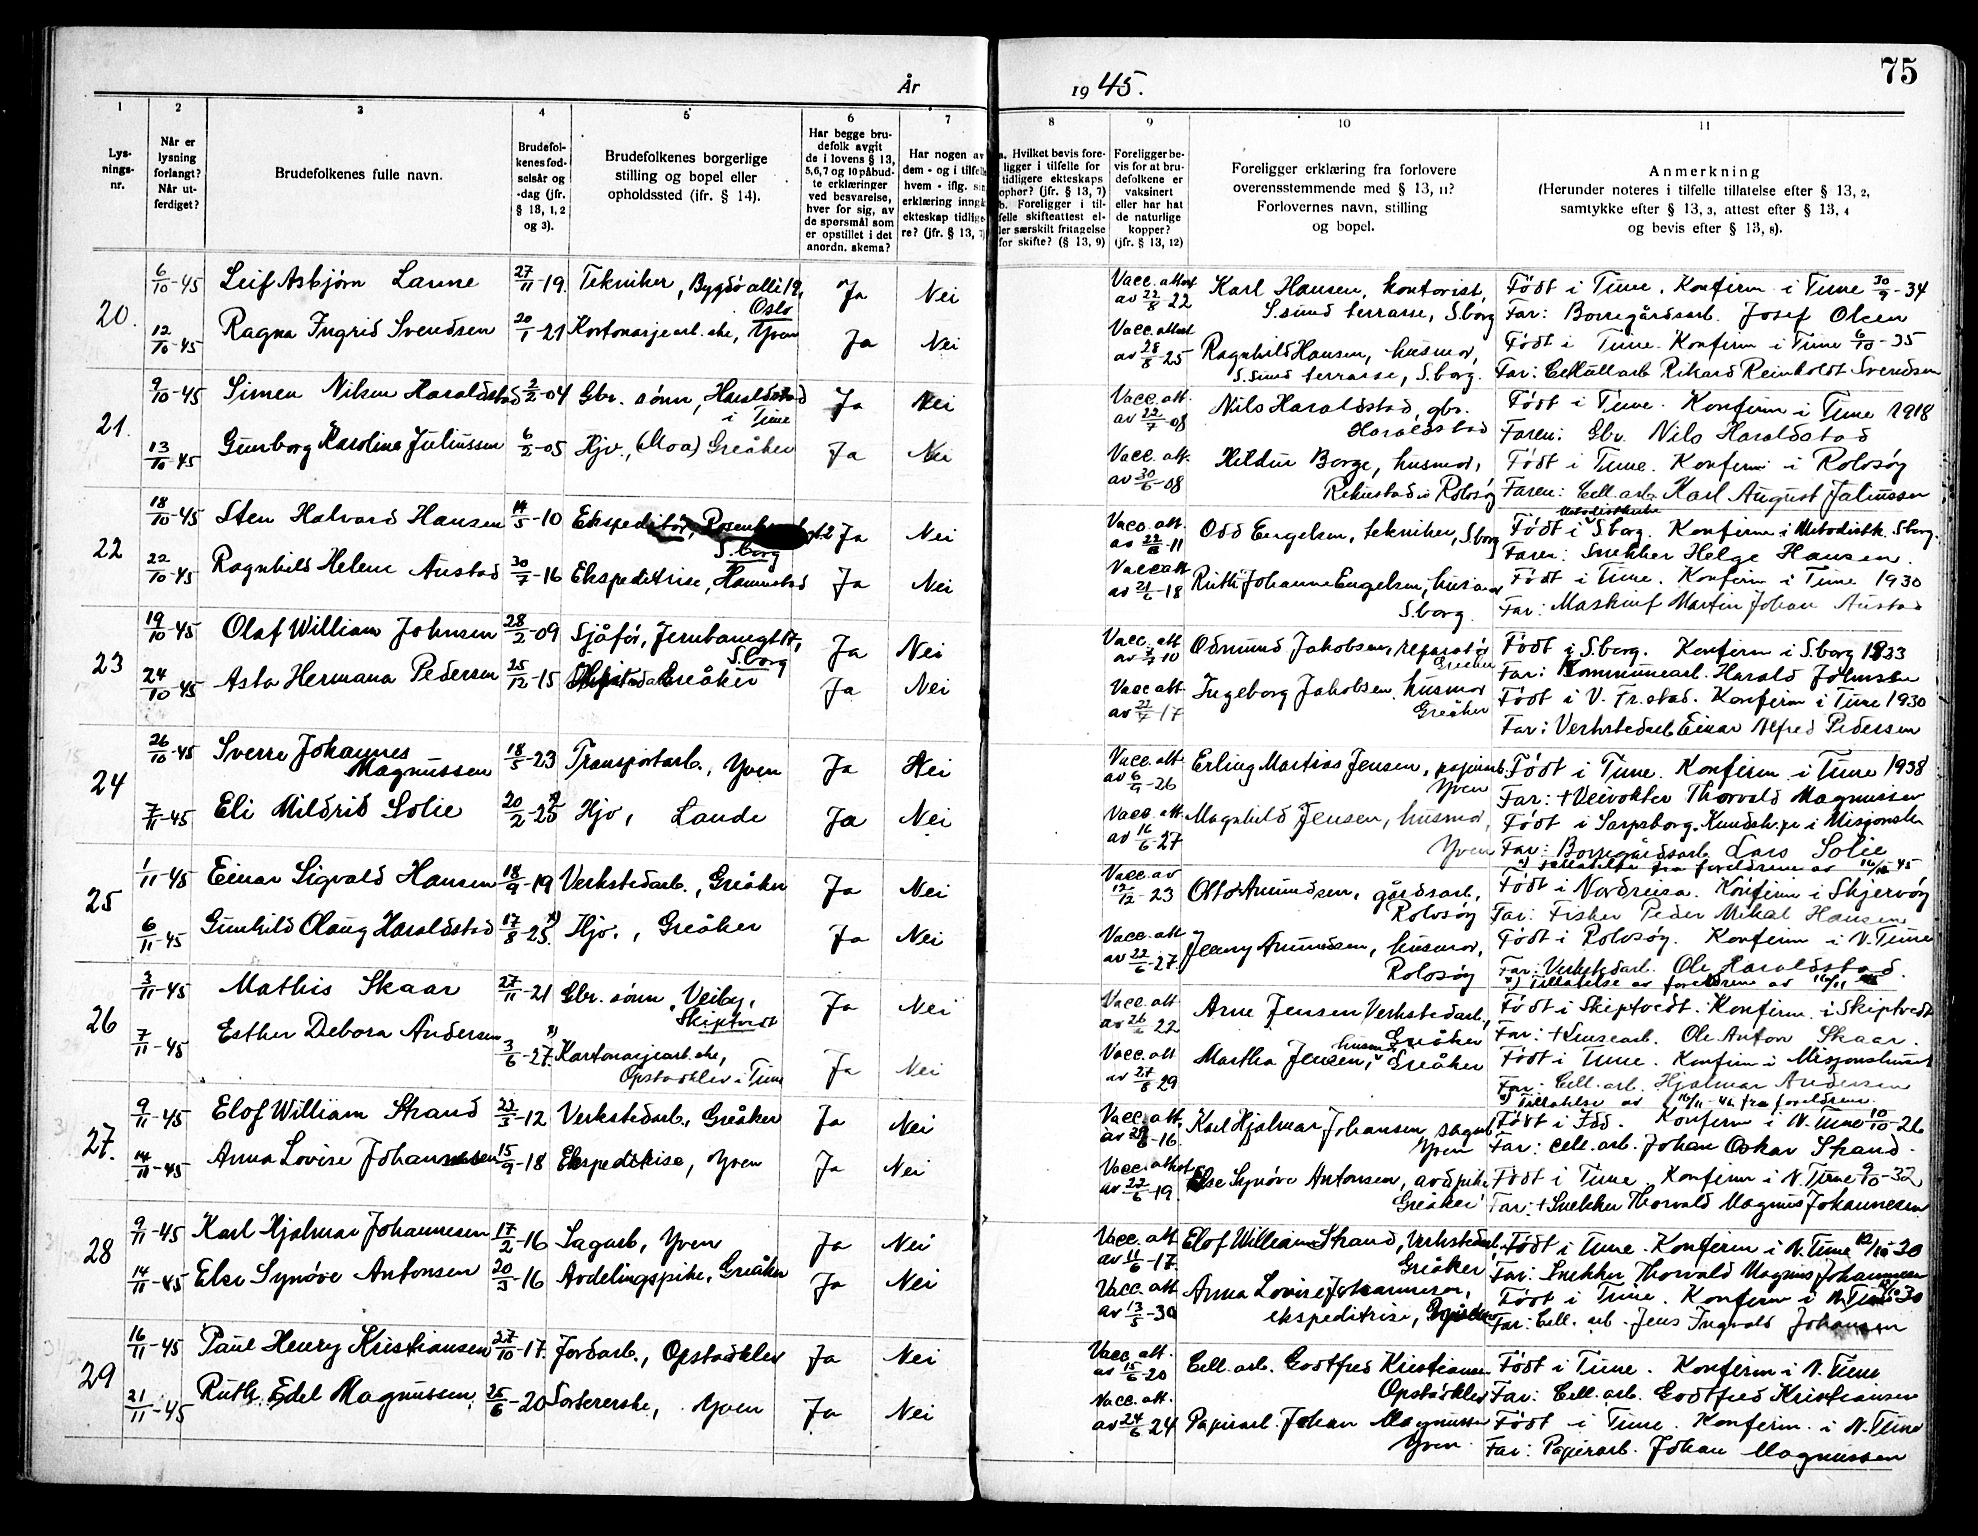 År
19 45.
75
1 2 3 4 5 6 7 8 9 10 11
Lysningsnr.
Når er lysning forlangt? Når utferdiget?
Brudefolkenes fulle navn.
Brudefolkenes fødselsår og -dag (jfr. § 13, 1, 2 og 3).
Brudefolkenes borgerlige stilling og bopel eller opholdssted (ifr. § 14).
Har begge brudefolk avgit de i lovens § 13, 5, 6, 7 og 10 påbudte erklæringer ved besvarelse, hver for sig, av de spørsmål som er opstillet i det anordn. skema?
Har nogen av dem - og i tilfelle hvem - iflg. sin erklæring inngått ekteskap tidligere? (jfr. § 13, 7)
a. Hvilket bevis foreligger i tilfelle for tidligere ekteskaps ophør? (jfr. § 13, 7) b. Foreligger i tilfelle skifteattest eller særskilt fritagelse for skifte? (§ 13, 9)
Foreligger bevis for at brudefolkene er vaksinert eller har hat de naturlige kopper? (jfr. § 13, 12)
Foreligger erklæring fra forlovere overensstemmende med § 13, 11? Forlovernes navn, stilling og bopel.
Anmerkning (Herunder noteres i tilfelle tillatelse efter § 13, 2, samtykke efter § 13, 3, attest efter § 13, 4 og bevis efter § 13, 8).
20. 6/10-45 Leif Asbjørn Lanne 27/11-19. Tekniker, Bygdø allé 19, Oslo Ja Nei Vacc. attest av 22/8-22 Karl Hansen, kontorist, S.sund terrasse, S.borg Født i Tune. Konfirm. i Tune 30/9-34
Far: Borregårdsarb. Josef Olsen
12/10-45 Ragna Ingrid Svendsen 20/1-21 Kartonasjearb.ske, Yven Ja Nei Vacc. attest av 28/8-25 Ragnhild Hansen, husmor, S.sund terrasse, S.borg. Født i Tune. Konfirm i Tune 6/10-35
Far: Cellull.arb Rikard Reinholdt Svendsen
21. 9/10-45 Simen Nilsen Haraldstad 2/2-04 Gbr. sønn, Haraldstad i Tune Ja Nei Vacc. att. av 22/7-08 Nils Haraldstad, gbr. Haraldstad Født i Tune. Konfirm i Tune 1918
Faren: Gbr. Nils Haraldstad
13/10-45 Gunborg Karoline Juliussen 6/2-05 Hjv., (Moa) Greåker Ja Nei Vacc. att. av 30/6-08 Hildur Borge, husmor, Rolvsøy Født i Tune. Konfirm i Rolvsøy
Faren: Cell.arb. Karl August Juliussen
22 18/10-45 Sten Halvard Hansen 14/5-10 Ekspeditør, S.borg Ja Nei Vacc. att. Odd Engelsen, tekniker, S.borg Født i S.borg. Konfirm i Metodistk. S.borg.
Faren: Snekker Helge Hansen.
22/10-45 Ragnhild Helene Austad 30/7-16 Ekspeditrise, Hannestad Ja Nei Vacc att av 21/6-18 Ruth Johanne Engelsen, husmor S.borg. Født i Tune. Konfirm i Tune 1930
Far: Maskinf Martin Johan Austad
23 19/10-45 Olaf William Johnsen 28/2-09 Sjåfør, Jernbanegt 17, S.borg Ja Nei Vacc. att. Odmund Jakobsen, reparatør Greåker Født i S.borg. Konfirm i S.borg 1933
Far: Kommunearb. Harald Johnsen
24/10-45 Asta Hermana Pedersen 25/12-15 Greåker Ja Nei Vacc att. av 22/7-17 Ingeborg Jakobsen husmor Greåker Født i V. Fr.stad. Konfirm i Tune 1930
Far: Verkstedarb Einar Alfred Pedersen
24 26/10-45 Sverre Johannes Magnussen 18/5-23 Transportarb., Yven Ja Nei Vacc. att. av 6/9-26 Erling Martias Jensen, papirarb. Yven Født i Tune. Konfirm i Tune 1938
Far: + Veivokter Thorvald Magnussen
7/11-45 Eli Mildrid Solie 20/2-25 x) Hjv, Lande Ja Nei Vacc. att. av 16/6-27 Magnhild Jensen, husmor, Yven Født i Sarpsborg.
Far: Borregårdsarb. Lars Solie
x) Tillatelse fra foreldrene av
25 1/11-45 Einar Sigvald Hansen 18/9-19 Verkstedarb., Greåker Ja Nei Vacc. av 12/12-23 Otto Amundsen, gårdsarb, Rolvsøy Født i Nordreisa. Konfirm i Skjervøy
Far: Fisker Peder Mikal Hansen
6/11-45 Gunhild Olaug Haraldstad 17/8-25 x) Hjv., Greåker Ja Nei Vacc. att av 22/6-27 Jenny Amundsen, husmor, Rolvsøy Født i Rolvsøy. Konfirm i N. Tune
Far: Verkstedarb. Ole Haraldstad.
x) Tillatelse av foreldrene av
26 3/11-45 Mathis Skaar 27/11-21 Gbr. sønn Veiby, Skiptvedt Ja Nei Vacc. att Arne Jensen Verkstedarb, Greåker Født i Skiptvedt. Konfirm i Skiptvedt
Far: + Ole Anton Skaar.
7/11-45 Esther Debora Andersen 3/6-27 x) Kartonasjearb.ske, Opstadklev i Tune Ja Nei Vacc. att av 27/8 29 Martha Jensen, husmor Greåker Født i Tune. Konfirm i Misjonshuset
Far: Cell.arb. Hjalmar Andersen
x) Tillatelse av fra foreldrene.
27. 9/11-45 Elof William Strand 22/3-12 Verkstedarb., Greåker Ja Nei Vacc. att. Karl Hjalmar Johansen sagarb Yven Født i Idd. Konfirm i N. Tune 10/10-26
Far: cell. arb. Johan Oskar Strand.
14/11-45 Anna Lovise Johannessen 15/9-18 Ekspeditrise, Yven Ja Nei Vacc. attest av 22/6-19 Else Synøve Antonsen, avd.pike Greåker Født i Tune. Konfirm i N. Tune 9/10-32
Far: + Snekker Thorvald Magnus Johannesen
28 9/11-45 Karl Hjalmar Johannesen 17/2-16 Sagarb, Yven Ja Nei Vacc. att av 11/6-17 Elof William Strand, Verkstedarb. Greåker Født i Tune. Konfirm i N. Tune 12/10-30
Far: Snekker Thorvald Magnus Johannesen
14/11-45 Else Synøve Antonsen 20/5-16 Avdelingspike, Greåker Ja Nei Vacc. att av 13/5-30 Anna Lovise Johannesen, ekspeditrise, Født i Tune. Konfirm i N. Tune 30
Far: Cell. arb. Jens Ingvald Johansen
29 16/11-45 Paul Henry Kristiansen 27/10-17. Jordarb., Opstadklev Ja Nei Vacc. att. av 15/6-20 Cell. arb. Godtfred Kristiansen Opstadklev Født i Tune. Konfirm i N. Tune
Far: Cell. arb. Godtfred Kristiansen
21/11-45 Ruth Edel Magnussen 25/6-20 Sortererske, Yven Ja Nei Vacc. att. av 24/6 24 Papirarb. Johan Magnussen Yven. Født i Tune. Konfirm. i N. Tune
Far: Papirarb. Johan Magnussen